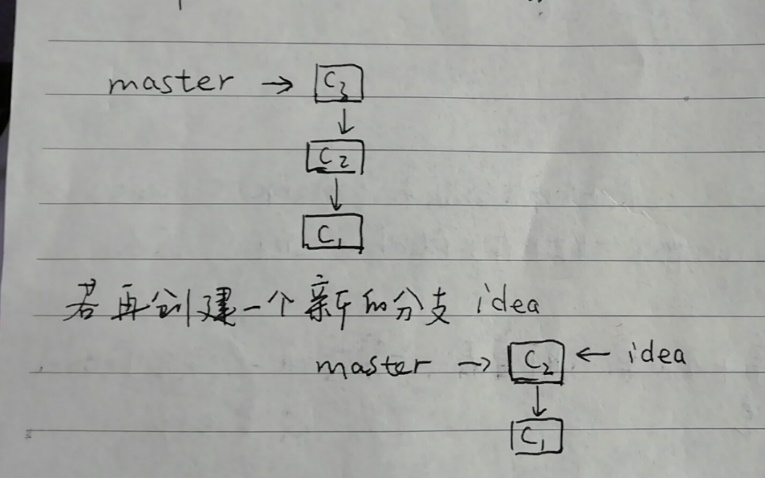 master → C3
↓
C2
↓
C1
若再创建一个新的分支 idea
master → C2 ← idea
↓
C1